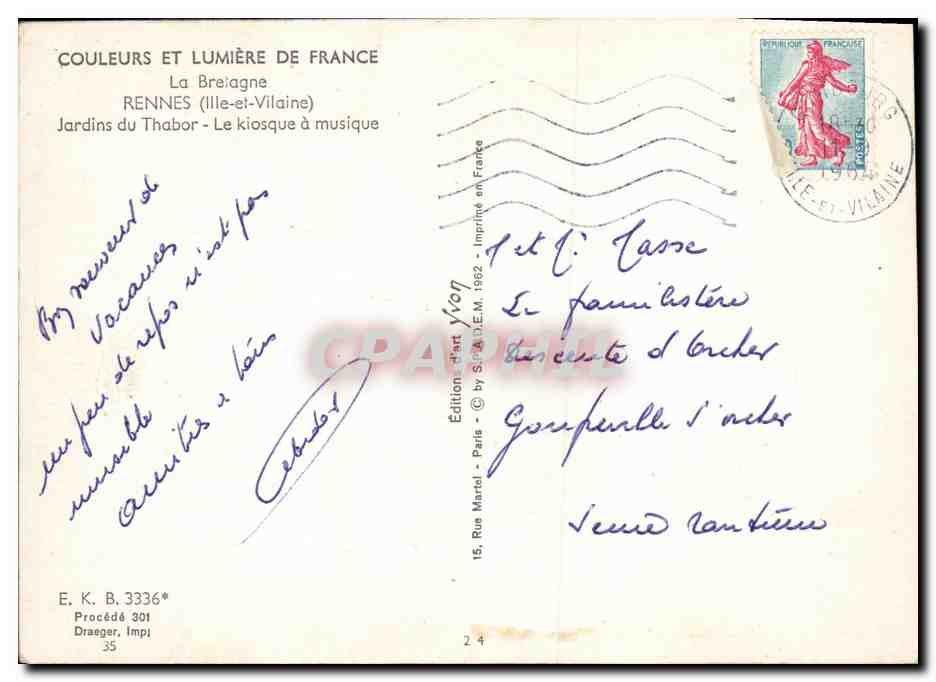 COULEURS ET LUMIÈRE DE FRANCE
La Bretagne
RENNES (Ille-et-Vilaine)
Jardins du Thabor - Le kiosque à musique
REPUBLIQUE FRANÇAISE
POSTES
1964
ILLE-ET-VILAINE
souvenir de
vacances
un peu de repos n'est pas
nuisible
amitiés à
Édition d'art Yvon
15, Rue Martel - Paris - © by S.P.A.D.E.M. 1962 - Imprimé en France
M et Mme Masse
Le familistère
Descente d'Orcher
Gonfreville l'orcher
Seine Maritime
CPAPHIL
E. K. B. 3336*
Procédé 301
Draeger, Imp
35
2 4